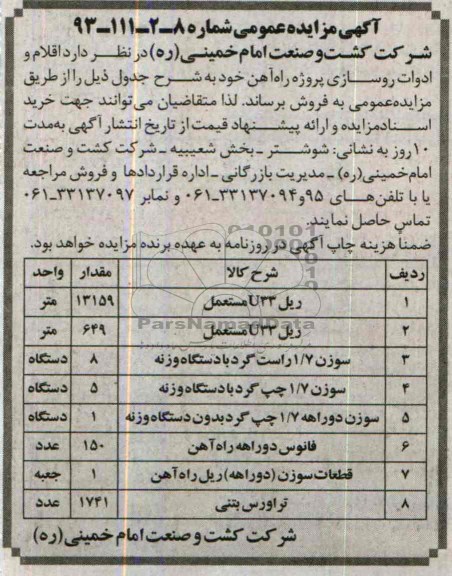 آگهی مزایده عمومی شماره ۸-۲-۱۱۱-۹۳
شرکت کشت و صنعت امام خمینی (ره) در نظر دارد اقلام و
ادوات روسازی پروژه راه‌آهن خود به شرح جدول ذیل را از طریق
مزایده عمومی به فروش برساند. لذا متقاضیان می‌توانند جهت خرید
اسناد مزایده و ارائه پیشنهاد قیمت از تاریخ انتشار آگهی به مدت
۱۰ روز به نشانی: شوشتر - بخش شعیبیه - شرکت کشت و صنعت
امام خمینی (ره) - مدیریت بازرگانی - اداره قراردادها و فروش مراجعه
یا با تلفن‌های ۹۵و۳۳۱۳۷۰۹۴-۰۶۱ و نمابر ۳۳۱۳۷۰۹۷-۰۶۱
تماس حاصل نمایند.
ضمناً هزینه چاپ آگهی در روزنامه به عهده برنده مزایده خواهد بود.
ردیف شرح کالا مقدار واحد
۱ ریل U۳۳ مستعمل ۱۳۱۵۹ متر
۲ ریل U۳۳ مستعمل ۶۴۹ متر
۳ سوزن ۱/۷ راست گرد با دستگاه وزنه ۸ دستگاه
۴ سوزن ۱/۷ چپ گرد با دستگاه وزنه ۵ دستگاه
۵ سوزن دوراهه ۱/۷ چپ گرد بدون دستگاه وزنه ۱ دستگاه
۶ فانوس دوراهه راه‌آهن ۱۵۰ عدد
۷ قطعات سوزن (دوراهه) ریل راه‌آهن ۱ جعبه
۸ تراورس بتنی ۱۷۴۱ عدد
شرکت کشت و صنعت امام خمینی (ره)
ParsNamadData